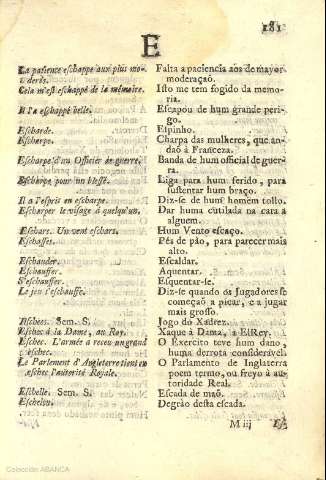 181
E
La patience eschappe aux plus mo-
derés.
Falta a paciencia aos de mayor
moderaçaõ.
Cela m'est eschappé de la memoire.
Isto me tem fogido da memo-
ria.
Il l'a eschappé belle.
Escapou de hum grande peri-
go.
Escharde.
Espinho.
Escharpe.
Charpa das mulheres, que an-
daõ à Franceza.
Escharpe d'un Officier de guerre.
Banda de hum official de guer-
ra.
Escharpe pour un blessé.
Liga para hum ferido, para
sustentar hum braço.
Il a l'esprit en escharpe.
Diz-se de hum homem tollo.
Escharper le visage à quelqu'un.
Dar huma cutilada na cara a
alguem.
Eschars. Un vent eschars.
Hum Vento escaço.
Eschasses.
Pés de páo, para parecer mais
alto.
Eschauder.
Escaldar.
Eschauffer.
Aquentar.
S'eschauffer.
Esquentar-se.
Le jeu s'eschauffe.
Diz-se quando os Jugadores se
começaõ a picar, e a jugar
mais grosso.
Eschecs. Sem. S.
Jogo do Xadrez.
Eschec à la Dame, au Roy.
Xaque a Dama, a ElRey.
Eschec. L'armée a receu un grand
eschec.
O Exercito teve hum dano,
huma derrota consideravel.
Le Parlement d'Angleterre tient en
eschec l'autorité Royale.
O Parlamento de Inglaterra
poem termo, ou freyo à au-
toridade Real.
Eschelle. Sem. S.
Escada de maõ.
Eschelon.
Degrão desta escada.
M iij
Colección ABANCA